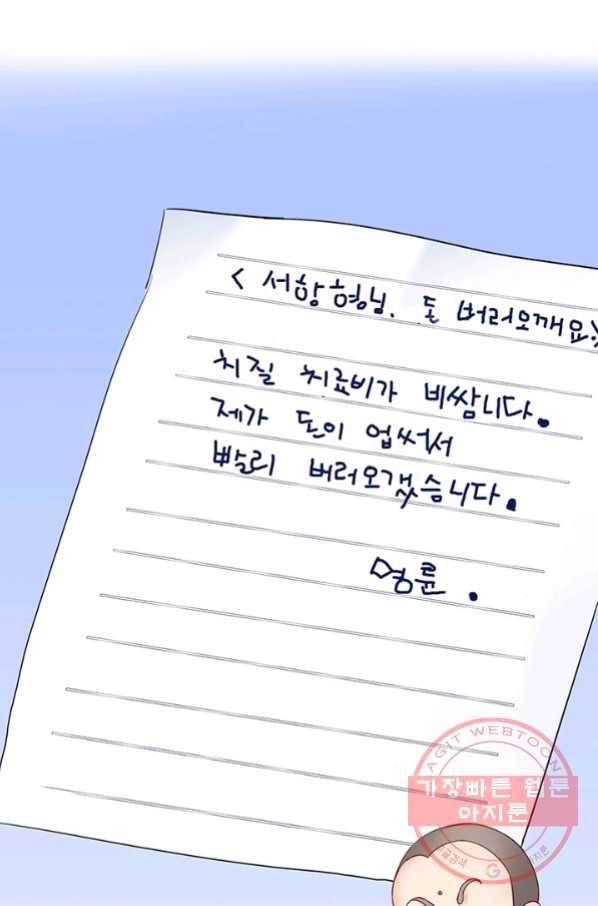 < 서향형님. 돈 버러오깨요>
치질 치료비가 비쌈니다.
제가 돈이 업써서
빨리 버러오갰습니다.
명륜.
AGIT WEBTOON
가장빠른 웹툰
아지툰
구글검색 G 아지툰